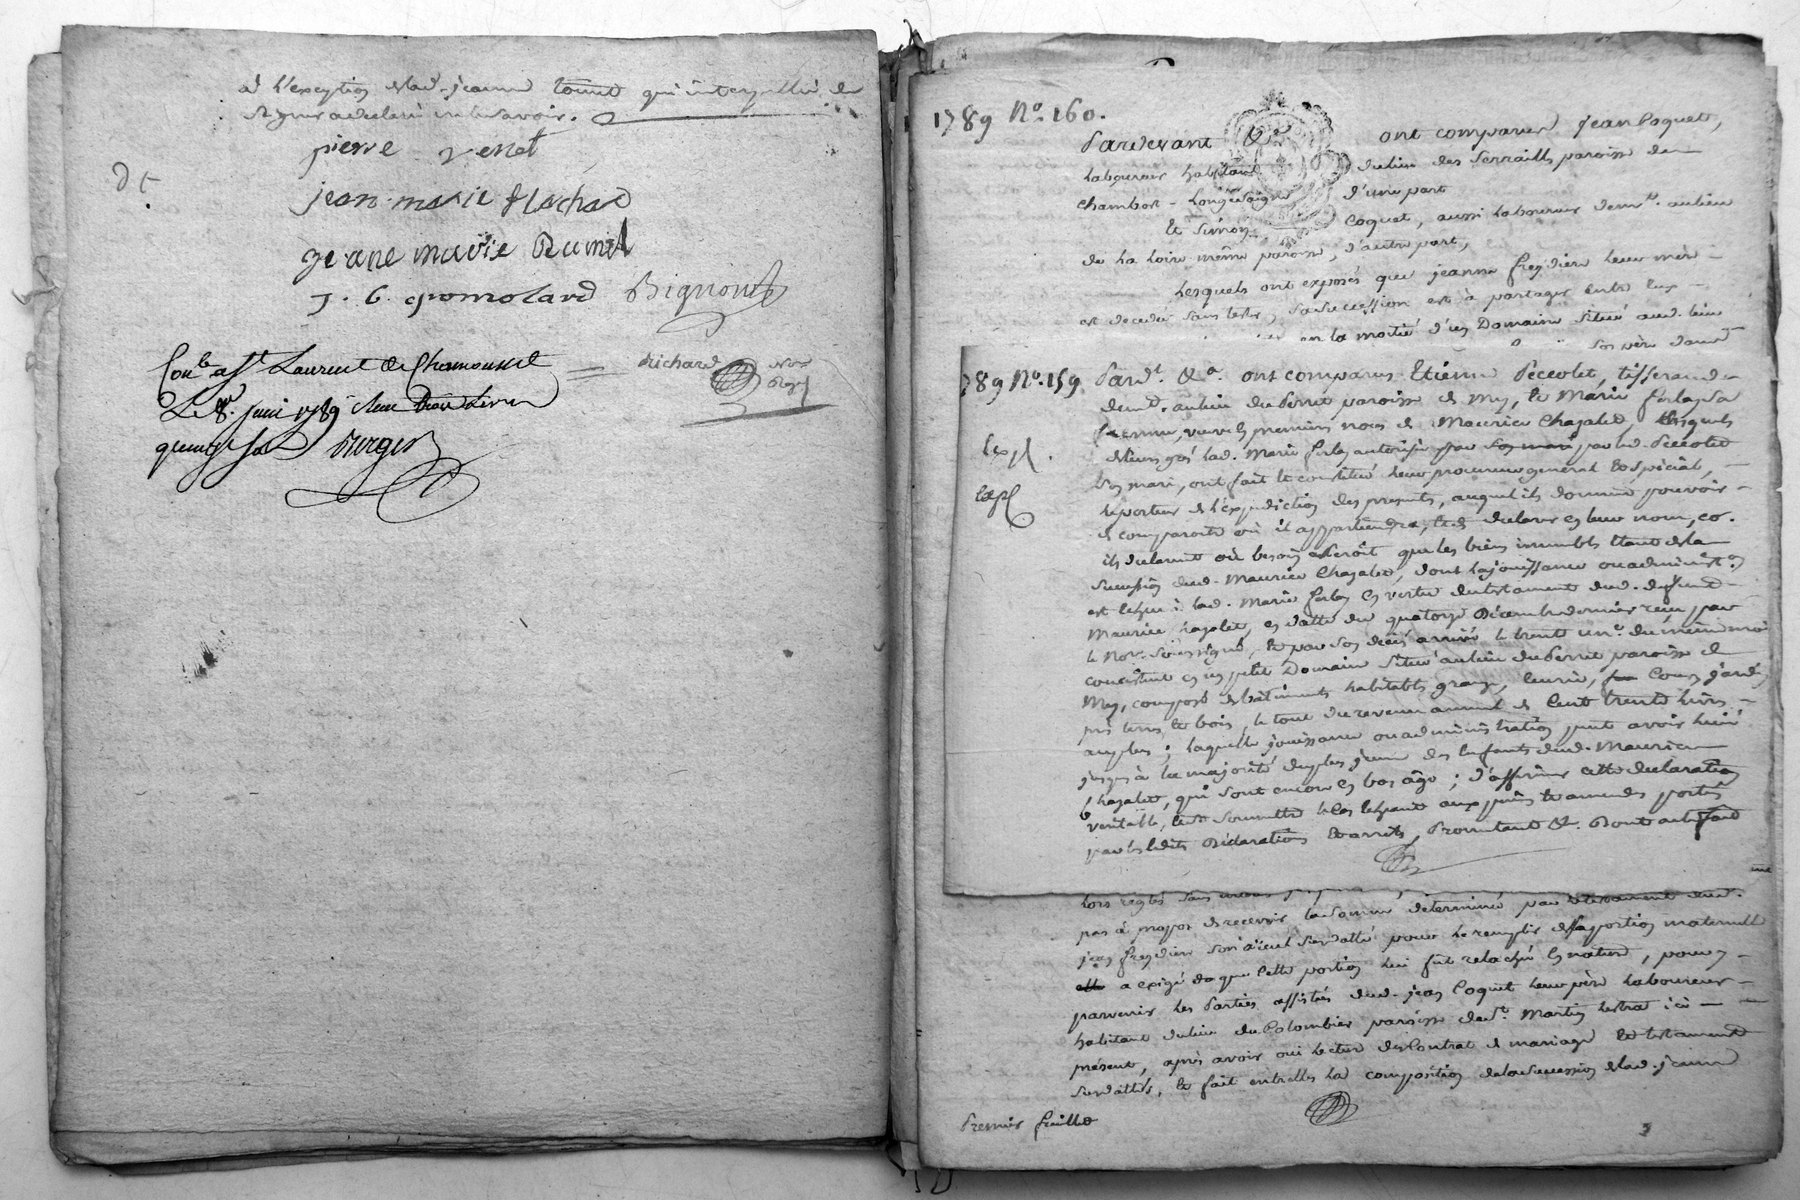 à l'exception de lad. jeanne qui interpellée de
signer a déclaré ne le savoir.
pierre venet
jean-marie flachat
jeane marie
J. C. gromolard Bignon
Conlé à St. Laurent de Chamousset = Richard Nore Royl
Le 8e. juin 1789 Reçu trois Livres
quinze sols Berger
1789 No. 160.
Pardevant &a ont comparus jean Coquet,
laboureur habitant du lieu des Serraills paroisse de
Chambost - Longessaigne d'une part
et Simon Coquet, aussi laboureur demt. au lieu
de la loire même paroisse, d'autre part,
Lesquels ont exposés que jeanne freydiere leur mère -
est décédée sans tester, sa succession est à partager entre eux -
en la moitié d'un Domaine situé aud. lieu
son père dans
789 No. 159 Pardt. &a. ont comparus Etienne Peccolet, tisserand
demt. au lieu du Perret paroisse de Mey, et Marie ferlay sa
femme, veuve en premieres noces de Maurice Chazalet, lesquels
de leurs grés lad. Marie ferlay autorisée par led. Peccolet
Exp.
son mari, ont fait et constitué leur procureur général et spécial, -
Expl
le porteur de l'expédiction des presentes, auquel ils donnent pouvoir -
de comparoitre où il appartiendra, et de déclarer en leur nom, co.
ils déclarent où besoin seroit que les biens immeubles étant de la
succession dud. Maurice Chazalet, dont la jouissance ou administon.
est léguée à lad. Marie ferlay en vertu du testament dud. defunt -
Maurice Chazalet, en datte du quatorze Décembre dernier reçu par
le Nore. Soussigné, et par son decès arrivé le trente une. du même moi
consistent en un petit Domaine situé au lieu du Perret paroisse de
Mey, composé de bâtiments habitables grange, écurie, Cour, jardin
prés terres, et bois, le tout du revenu annuel de Cent trente livres -
au plus; laquelle jouissance ou administration peut avoir lieu
jusques à la majorité du plus jeune des Enfants dud. Maurice
Chazalet, qui sont encore en bas âge; d'affirmer cette declaration
veritable, et de soumettre le cas échéant aux peines et amendes portées
par les Edits Déclarations et arrets, Promettant &. Dont acte fait
hors réglés sans
pas à propos de recevoir la somme determinée par le testament dud.
jean freydiere son aïeul susdatté pour le remplir de sa portion maternelle
a exigé que cette portion lui fut relachée en nature, pour y -
parvenir les Parties assistées dud. jean Coquet leur père laboureur -
habitant du lieu du Colombier paroisse de St. Martin lestra ici -
présent, après avoir oui lecture du Contrat de mariage et testament
susdattés, et fait entr'elles la composition de la succession de lad. jeanne
Premier feuillet